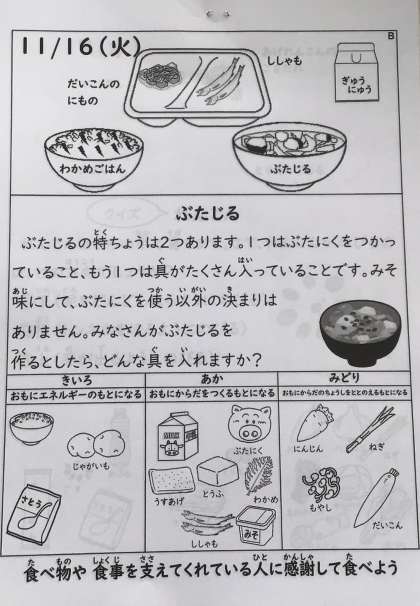 11/16(火)
B
だいこんの
にもの
ししゃも
ぎゅう
にゅう
わかめごはん
ぶたじる
ぶたじる
ぶたじるの特ちょうは2つあります。1つはぶたにくをつかっ
ていること、もう1つは具がたくさん入っていることです。みそ
味にして、ぶたにくを使う以外の決まりは
ありません。みなさんがぶたじるを
作るとしたら、どんな具を入れますか?
きいろ
おもにエネルギーのもとになる
じゃがいも
さとう
あか
おもにからだをつくるもとになる
ぶたにく
うすあげ
とうふ
わかめ
ししゃも
みそ
みどり
おもにからだのちょうしをととのえるもとになる
にんじん
ねぎ
もやし
だいこん
食べ物や 食事を支えてくれている人に感謝して食べよう